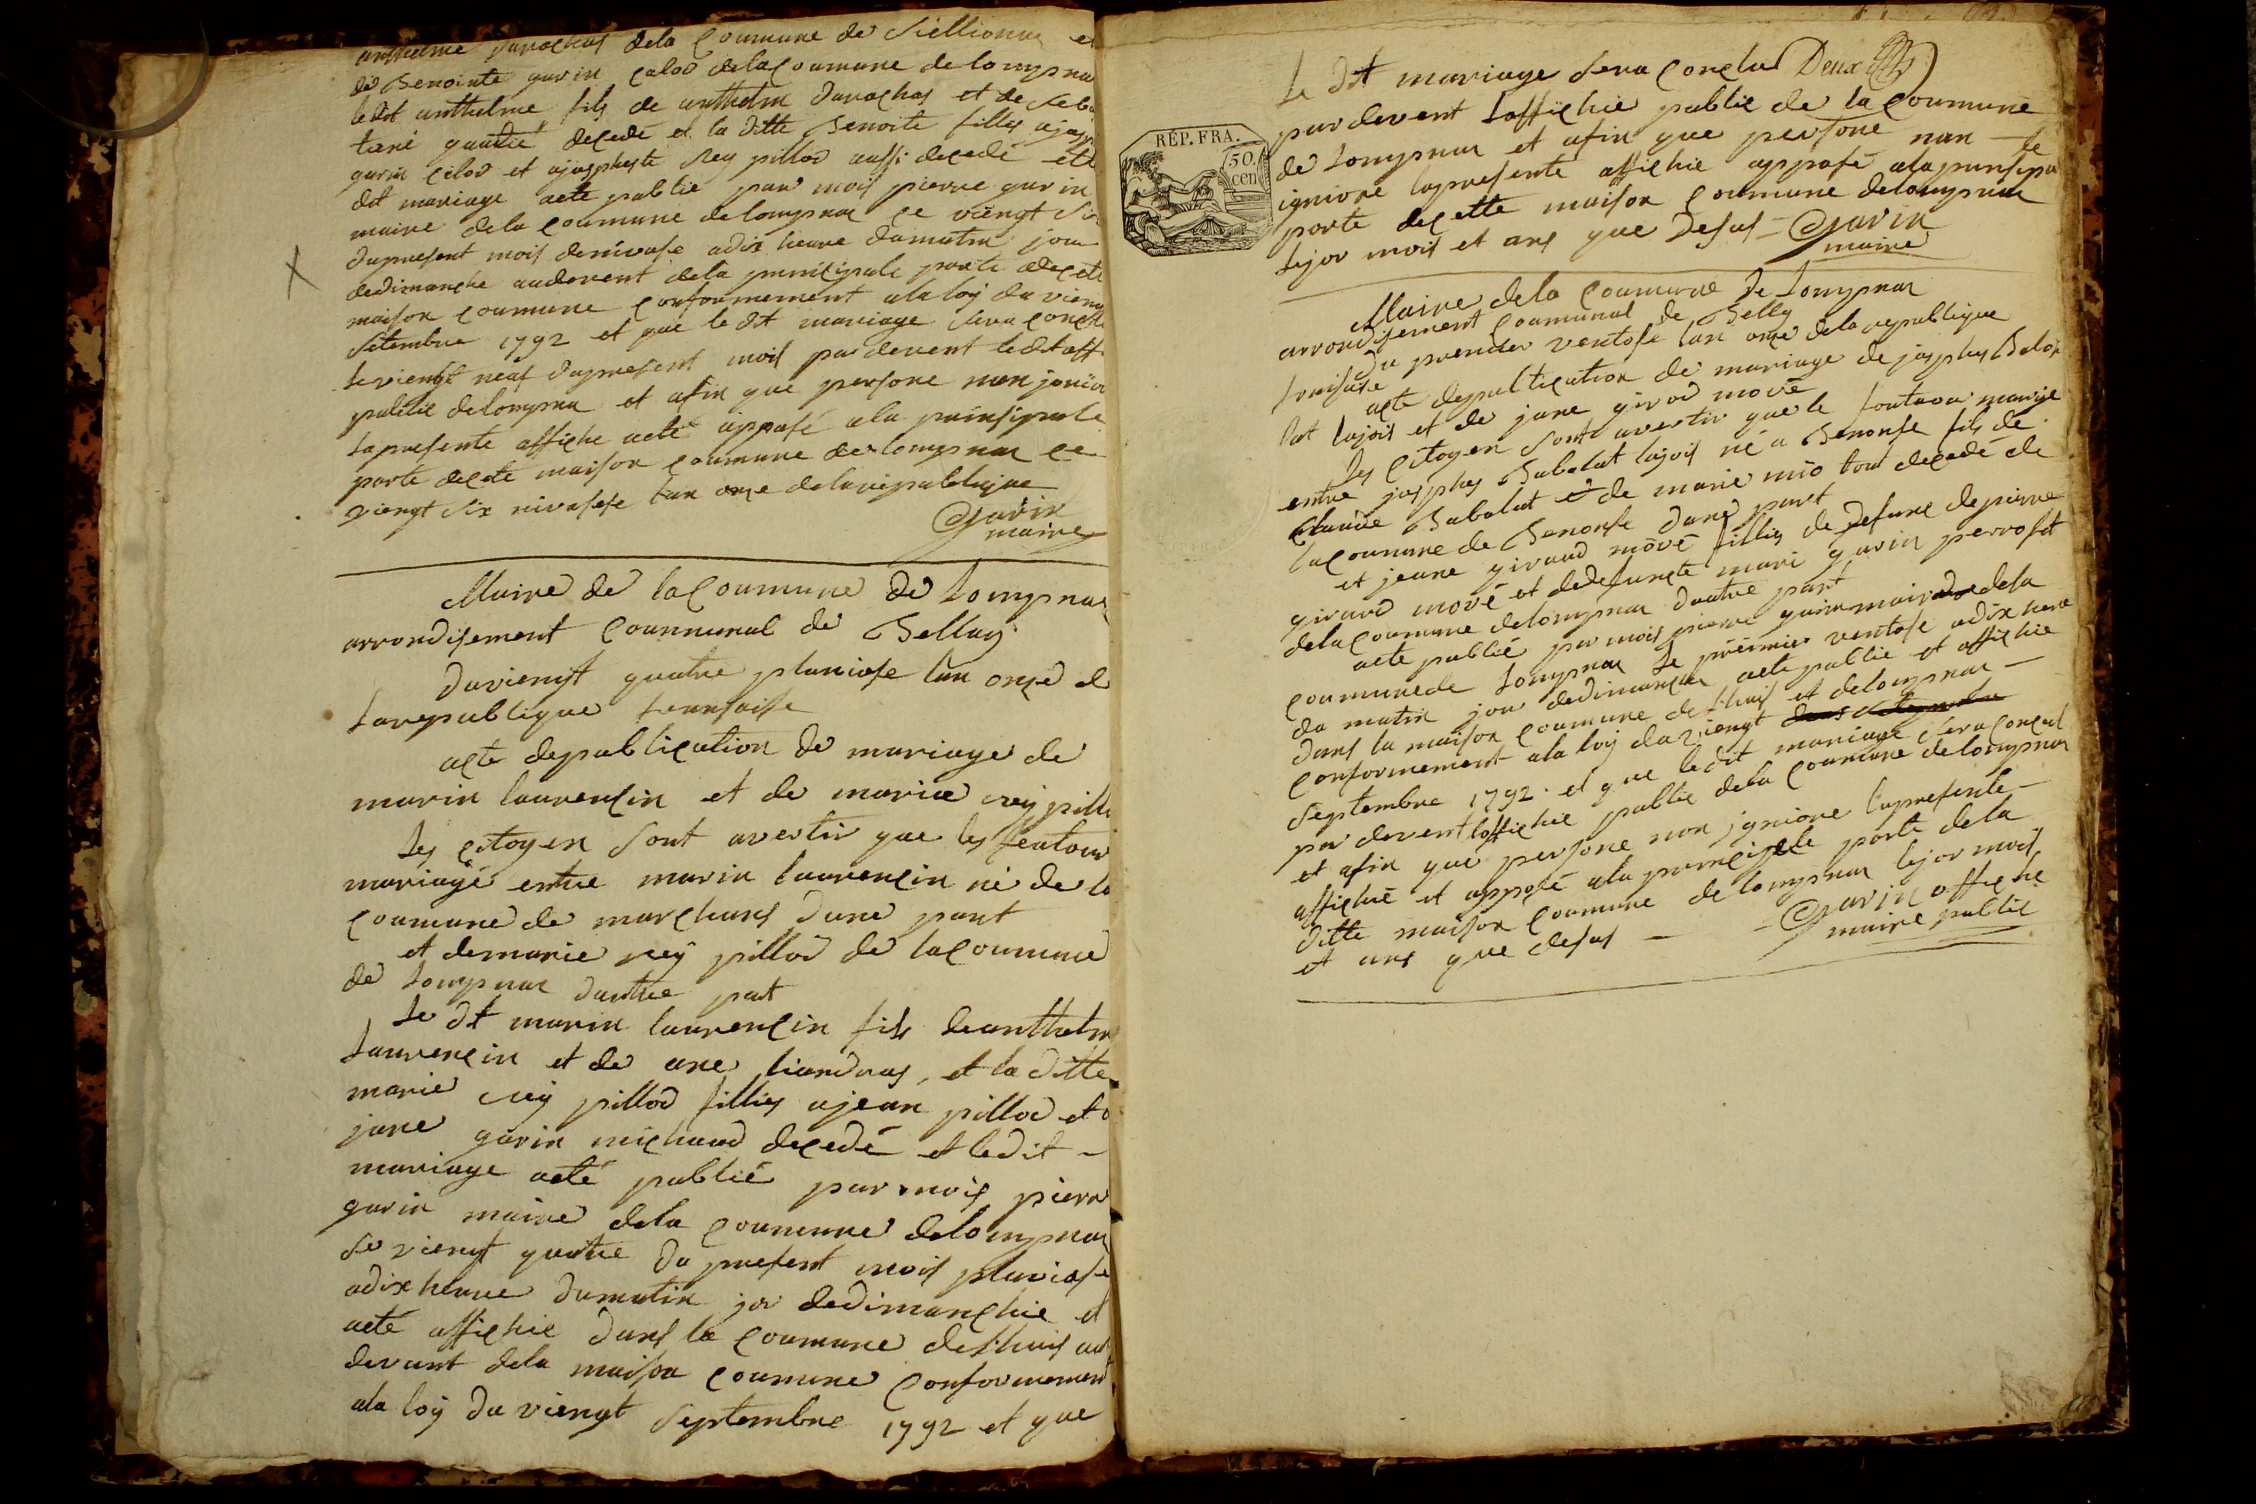 anthelme de la Coumune de et
de Benoite gavin de la Coumune de lompnas
ledit anthelme fils de anthelm et de
décédé et la ditte Benoite fillies
gavin et rey pillod aussi decedé et le
dit mariage acté publié par moiy pierre gavin
maire de la Coumune de lompnas ce viengt six
du present mois de nivose a dix heure du matin jour
de dimanche au devent de la principale porte de cete
maison coumune conformement a la loy du viengt
setembre 1792 et que le dit mariage sera conclu
le viengt neuf du present mois par devent ledit
public de lompnas et afin que persone nan
la presente affiche acté apposé a la prinsipale
porte de cete maison coumune de lompnas ce
viengt six nivosese lan onze de la republique
Gavin
maire
Maire de la Coumune de Lompnas
arrondisement Coumunal de Bellay
du viengt quatre pluviose lan onze de
la republique fransaise
acte de publication de mariage de
marin laurencin et de marie rey pillod
les citoyen sont avertir que les
mariage entre marin laurencin né de la
coumune de marchans dune part
et de marie rey pillod de la coumune
de Lompnas dautre part
le dit marin laurencin fils de anthelme
laurencin et de ane et la ditte
marie rey pillod fillies a jean pillod et a
jane gavin michaud decedé et ledit
mariage acté publié par moiy pierre
gavin maire de la coumune de lompnas
le viengt quatre du present mois pluviose
a dix heure du matin jor de dimanchie et
acté affichie dans la coumune de au
devant de la maison coumune conformement
a la loy du viengt septembre 1792 et que
Deux
le dit mariage sera conclu
par devent laffichie public de la Coumune
RÉP. FRA.
50 cen
de Lompnas et afin que persone nan
igniore la presente affichie apposé a la prinsipal
porte de cette maison coumune de lompnas
le jor mois et ans que desus = Gavin
maire
Maire de la Coumune de Lompnas
arrondisement Coumunal de Belley
du premier ventose lan onze de la republique
fransaise
acte de publication de mariage de josphes
et de jane girod mové
les citoyen sont avertir que le mariage
entre josphes né a Benonse fils de
Claude et de marie tous decedé de
la coumune de Benonse dune part
et jeane giraud mové fillies de defunc de pierre
giraud mové et de defuncte mari gavin perroset
de la coumune de lompnas dautre part
acte publié par moiy pierre gavin maire de la
coumune de Lompnas le premier ventose a dix heure
du matin jour de dimanche acté public et affichie
dans la maison coumune de et de lompnas
conformement a la loy du viengt
septembre 1792. et que ledit mariage sera conclut
par devent laffichie public de la coumune de lompnas
et afin que persone non igniore la presente
affichie et apposé a la principale porte de la
ditte maison coumune de lompnas le jor mois
et ans que desus = Gavin affiche
maire public